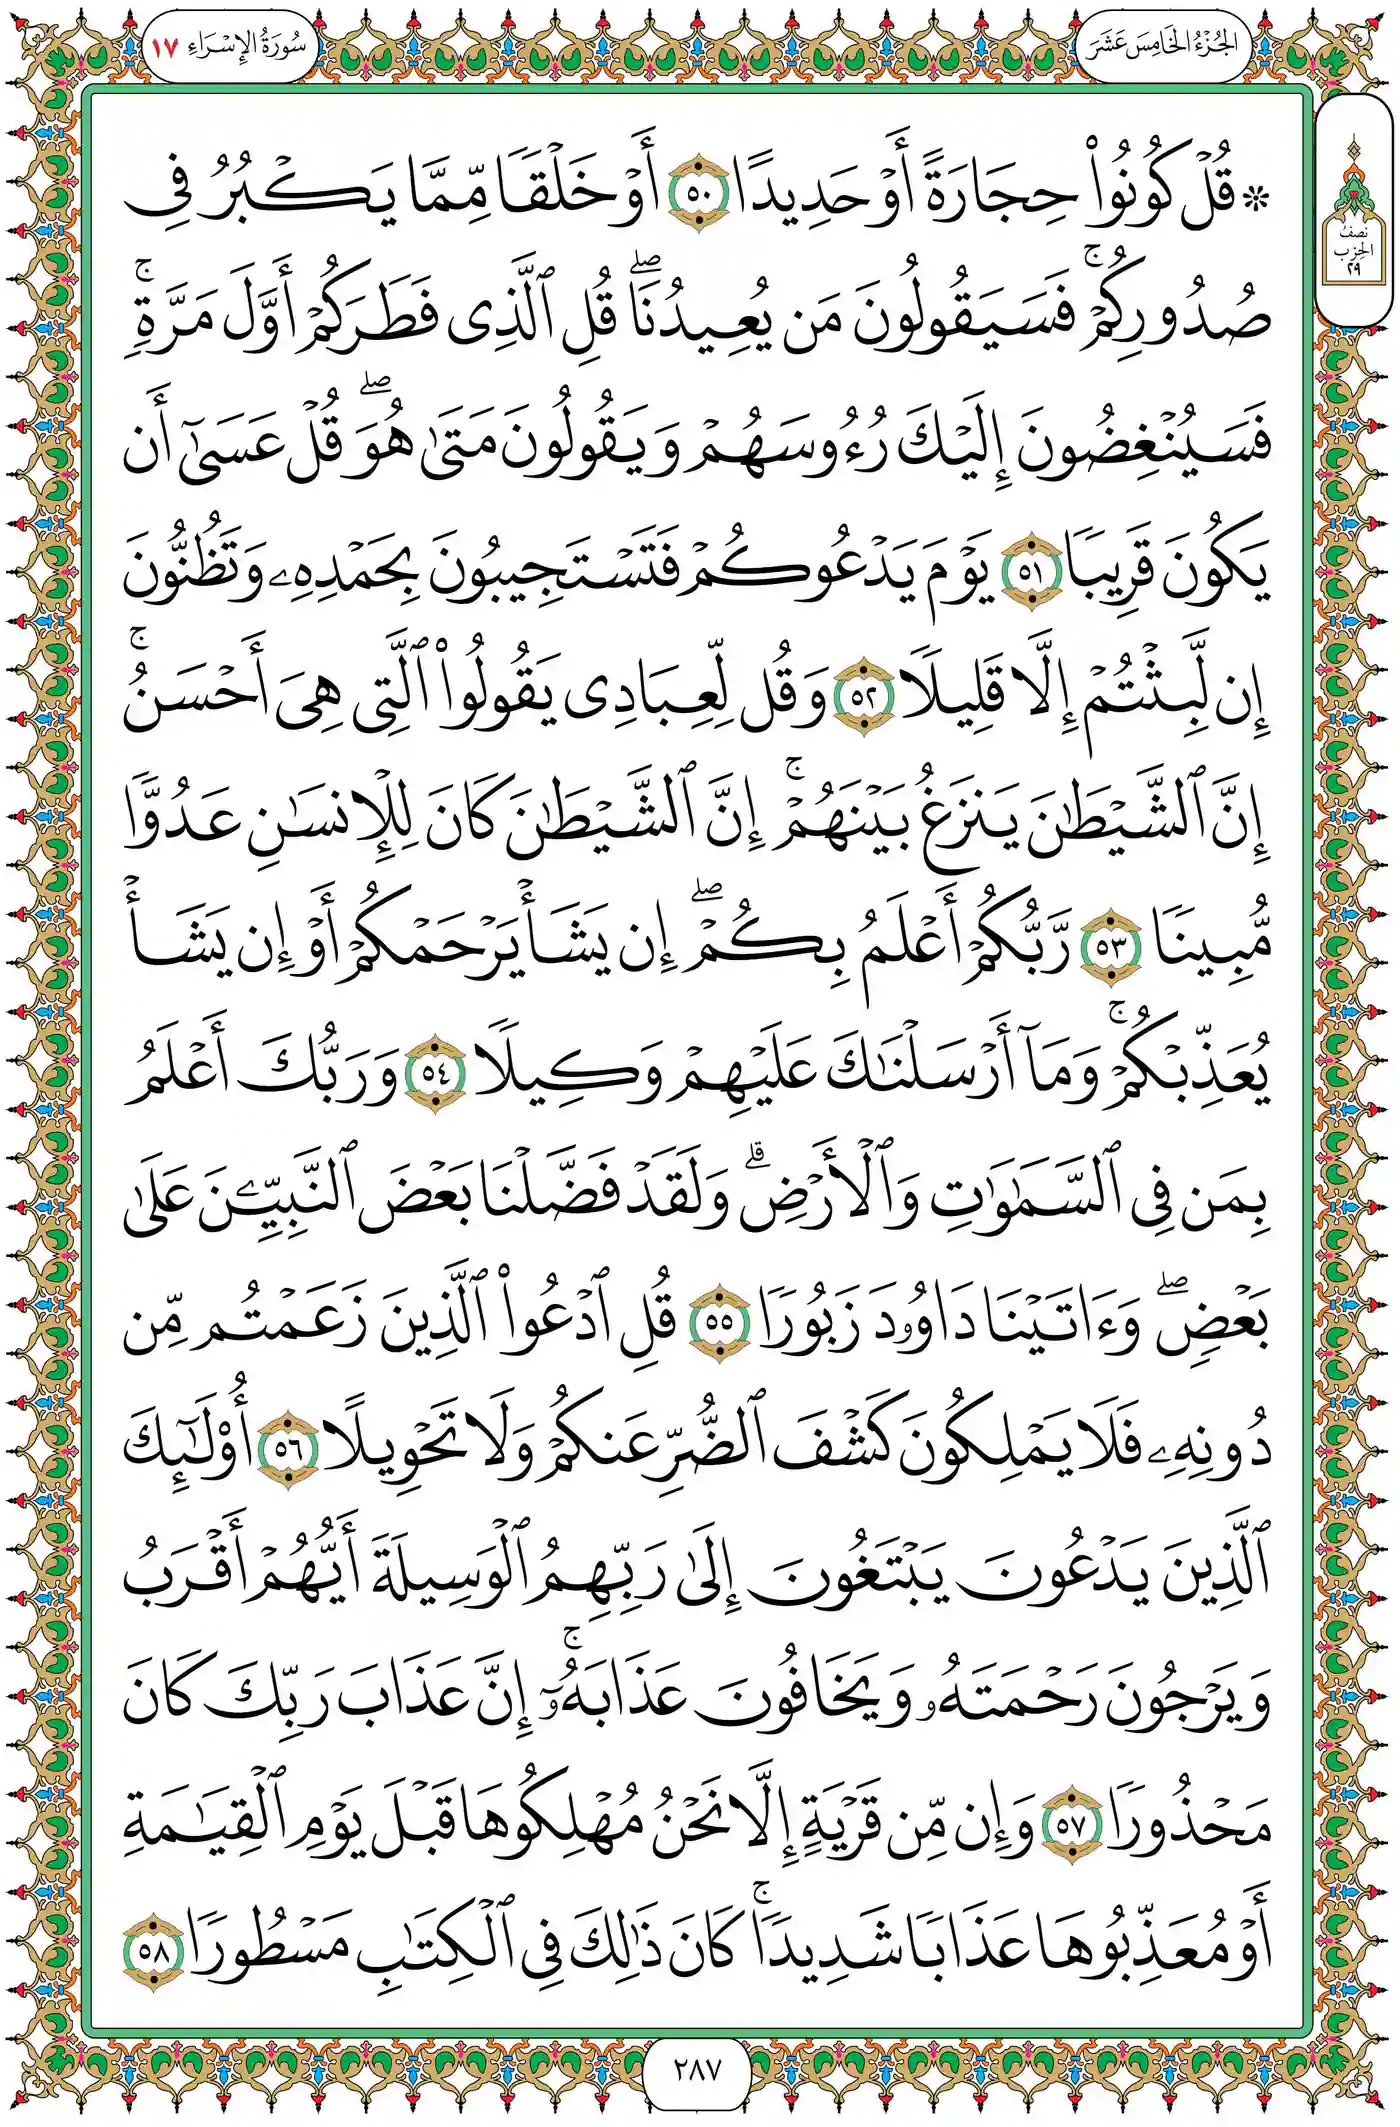 الجُزْءُ الخَامِسَ عَشَرَ
سُورَةُ الإِسْرَاءِ ١٧
نصف
الحزب
٢٩
۞ قُلۡ كُونُواْ حِجَارَةً أَوۡ حَدِيدًا ٥٠ أَوۡ خَلۡقٗا مِّمَّا يَكۡبُرُ فِي
صُدُورِكُمۡۚ فَسَيَقُولُونَ مَن يُعِيدُنَاۖ قُلِ ٱلَّذِي فَطَرَكُمۡ أَوَّلَ مَرَّةٖۚ
فَسَيُنۡغِضُونَ إِلَيۡكَ رُءُوسَهُمۡ وَيَقُولُونَ مَتَىٰ هُوَۖ قُلۡ عَسَىٰٓ أَن
يَكُونَ قَرِيبٗا ٥١ يَوۡمَ يَدۡعُوكُمۡ فَتَسۡتَجِيبُونَ بِحَمۡدِهِۦ وَتَظُنُّونَ
إِن لَّبِثۡتُمۡ إِلَّا قَلِيلٗا ٥٢ وَقُل لِّعِبَادِي يَقُولُواْ ٱلَّتِي هِيَ أَحۡسَنُۚ
إِنَّ ٱلشَّيۡطَٰنَ يَنزَغُ بَيۡنَهُمۡۚ إِنَّ ٱلشَّيۡطَٰنَ كَانَ لِلۡإِنسَٰنِ عَدُوّٗا
مُّبِينٗا ٥٣ رَّبُّكُمۡ أَعۡلَمُ بِكُمۡۖ إِن يَشَأۡ يَرۡحَمۡكُمۡ أَوۡ إِن يَشَأۡ
يُعَذِّبۡكُمۡۚ وَمَآ أَرۡسَلۡنَٰكَ عَلَيۡهِمۡ وَكِيلٗا ٥٤ وَرَبُّكَ أَعۡلَمُ
بِمَن فِي ٱلسَّمَٰوَٰتِ وَٱلۡأَرۡضِۗ وَلَقَدۡ فَضَّلۡنَا بَعۡضَ ٱلنَّبِيِّـۧنَ عَلَىٰ
بَعۡضٖۖ وَءَاتَيۡنَا دَاوُۥدَ زَبُورٗا ٥٥ قُلِ ٱدۡعُواْ ٱلَّذِينَ زَعَمۡتُم مِّن
دُونِهِۦ فَلَا يَمۡلِكُونَ كَشۡفَ ٱلضُّرِّ عَنكُمۡ وَلَا تَحۡوِيلًا ٥٦ أُوْلَٰٓئِكَ
ٱلَّذِينَ يَدۡعُونَ يَبۡتَغُونَ إِلَىٰ رَبِّهِمُ ٱلۡوَسِيلَةَ أَيُّهُمۡ أَقۡرَبُ
وَيَرۡجُونَ رَحۡمَتَهُۥ وَيَخَافُونَ عَذَابَهُۥٓۚ إِنَّ عَذَابَ رَبِّكَ كَانَ
مَحۡذُورٗا ٥٧ وَإِن مِّن قَرۡيَةٍ إِلَّا نَحۡنُ مُهۡلِكُوهَا قَبۡلَ يَوۡمِ ٱلۡقِيَٰمَةِ
أَوۡ مُعَذِّبُوهَا عَذَابٗا شَدِيدٗاۚ كَانَ ذَٰلِكَ فِي ٱلۡكِتَٰبِ مَسۡطُورٗا ٥٨
٢٨٧